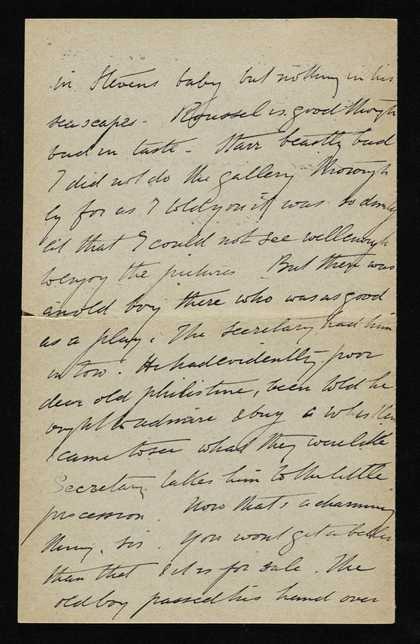 in Stevens baby but nothing in his
seascapes - Roussel is good though
bad in taste - Starr beastly bad
I did not do the gallery thorough
ly for as I told you it was so dimly
lit that I could not see well enough
to enjoy the pictures But there was
an old boy there who was as good
as a play. The Secretary had him
in tow. He had evidently, poor
dear old philistine, been told he
ought to admire & buy a Whistler
& came to see what they were like
Secretary takes him to the little
procession. Now that's a charming
thing, sir. You wont get a better
than that & it is for sale. The
old boy passed his hand over